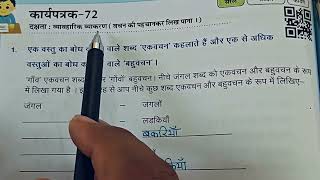 कार्यपत्रक-72
दक्षता : व्यावहारिक व्याकरण ( वचन को पहचानकर लिख पाना । )
1. एक वस्तु का बोध वाले शब्द 'एकवचन' कहलाते हैं और एक से अधिक
वस्तुओं का बोध वाले 'बहुवचन' ।
'गाँव' एकवचन शब्द 'गाँवों' बहुवचन। नीचे जंगल शब्द को एकवचन और बहुवचन के रूप में
लिखा गया है । इ ह से आप नीचे कुछ शब्द एकवचन और बहुवचन के रूप में लिखिए:-
जंगल - जंगलों
- लडकियाँ
बकरियाँ